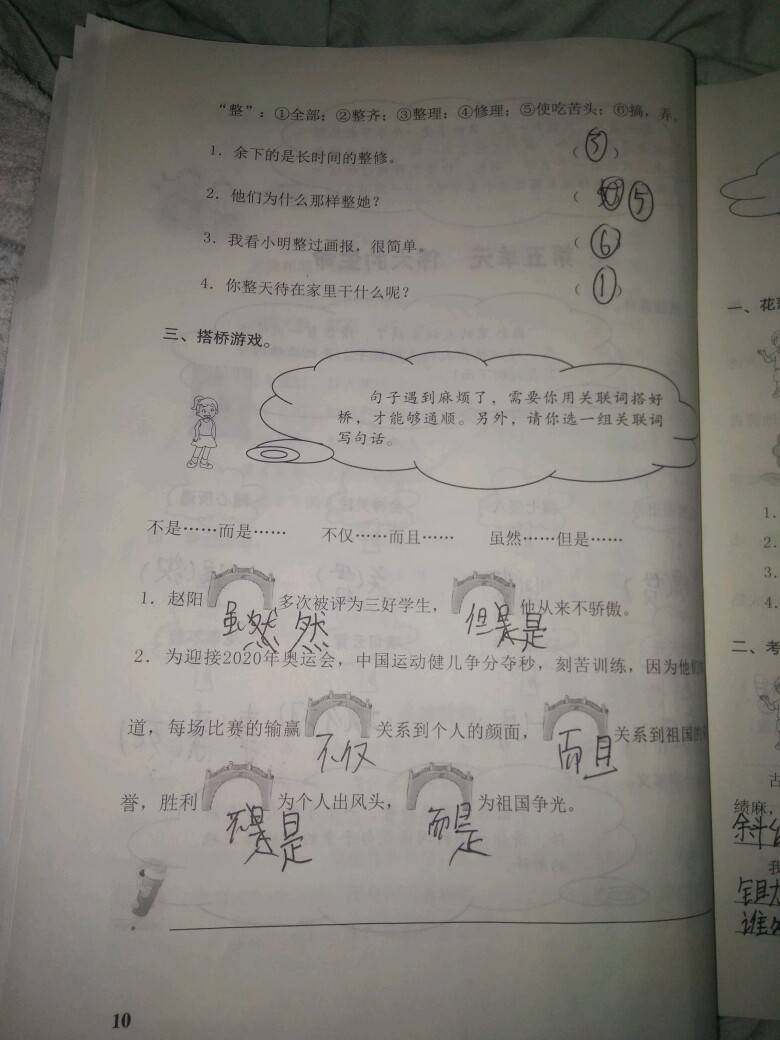 “整”：①全部；②整齐；③整理；④修理；⑤使吃苦头；⑥搞，弄。
1. 余下的是长时间的整修。 （ ）
2. 他们为什么那样整她？ （ ⑤
3. 我看小明整过画报，很简单。 （⑥）
4. 你整天待在家里干什么呢？ （①）
三、搭桥游戏。
句子遇到麻烦了，需要你用关联词搭好
桥，才能够通顺。另外，请你选一组关联词
写句话。
不是……而是…… 不仅……而且…… 虽然……但是……
1. 赵阳 虽然 然 多次被评为三好学生， 但是是 他从来不骄傲。
2. 为迎接2020年奥运会，中国运动健儿争分夺秒，刻苦训练，因为他们
道，每场比赛的输赢 不仅 关系到个人的颜面， 而且 关系到祖国的
誉，胜利 不是是 为个人出风头， 而是 为祖国争光。
10
一、花
1.
2.
3.
4.
二、考
古
绩麻，
我